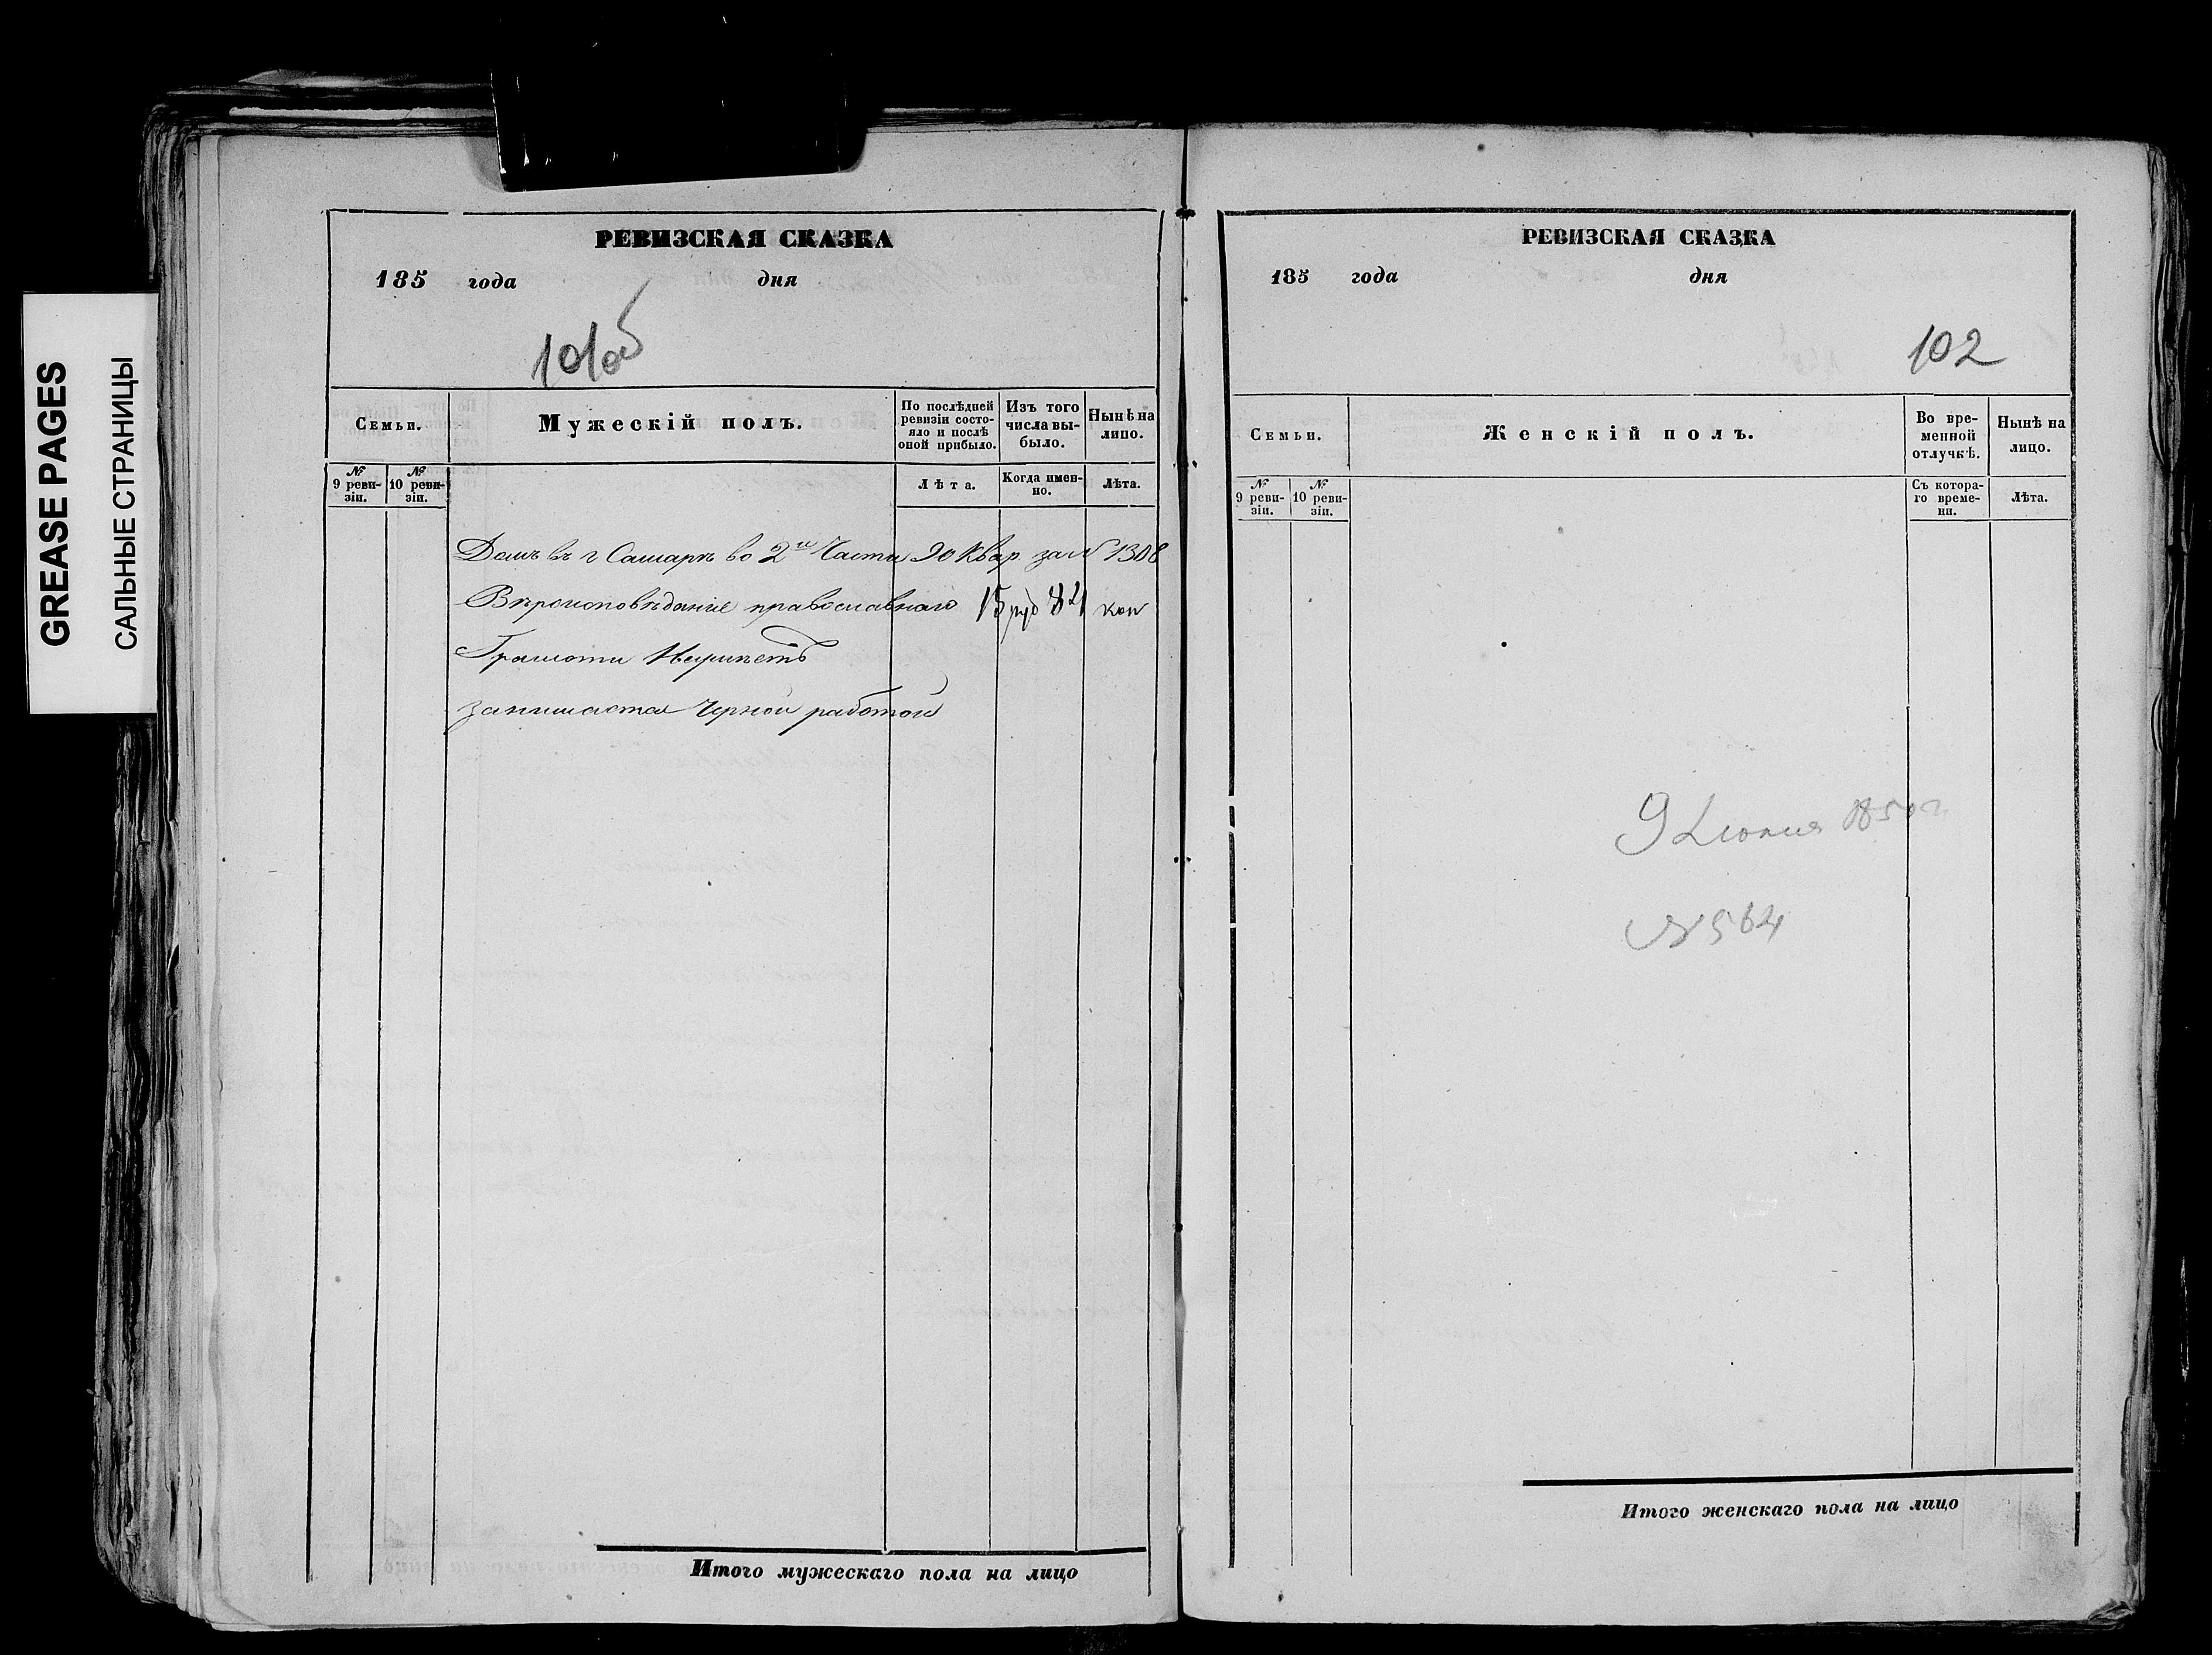 GREASE PAGES
САЛЬНЫЕ СТРАНИЦЫ
РЕВИЗСКАЯ СКАЗКА
185 года дня
Семьи.
Мужескій полъ.
По послѣдней ревизіи состо-
яло и послѣ
оной прибыло.
Изъ того
числа вы-
было.
Нынѣ на
лицо.
№
9 реви-
зіи.
№
10 реви-
зіи.
Лѣта.
Когда имен-
но.
Лѣта.
Домъ въ г Самарѣ во 2й Части 20 Квар. за № 1308
Вѣроисповѣданіе православнаго 15 руб 84 коп
Грамоти Неумиетъ
занимается Черной работой
Итого мужескаго пола на лицо
РЕВИЗСКАЯ СКАЗКА
185 года дня
102
Семьи.
Женскій полъ.
Во вре-
менной
отлучкѣ.
Нынѣ на
лицо.
№
9 реви-
зіи.
№
10 реви-
зіи.
Съ котора-
го време-
ни.
Лѣта.
9 Июня
№ 564
Итого женскаго пола на лицо